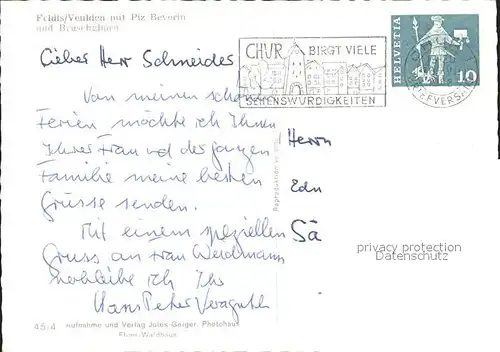 Feldis/Veulden mit Piz Beverin
und Bruschghorn
Lieber Herr Schneider
Von meinen schön
Ferien möchte ich Ihnen
Ihrer Frau und der ganzen
Familie meine besten
Grüsse senden.
Mit einem speziellen
Gruss an Frau Weidmann
verbleibe ich Ihr
Hans Peter Veraguth
CHUR BIRGT VIELE
SEHENSWÜRDIGKEITEN
HELVETIA
10
BRIEFVERSAND
Reproduktion
Herrn
Edu
Sä
privacy protection
Datenschutz
45:4 Aufnahme und Verlag Jules Geiger, Photohaus
Flims-Waldhaus